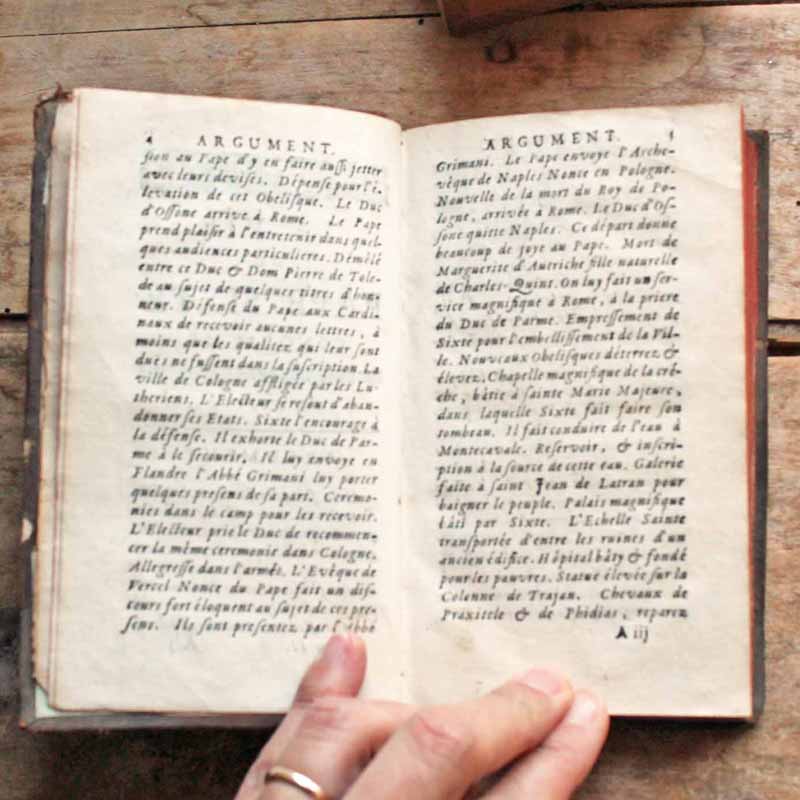 4 ARGUMENT.
sion au Pape d'y en faire aussi jetter
avec leurs devises. Dépense pour l'é-
levation de cet Obelisque. Le Duc
d'Ossone arrive à Rome. Le Pape
prend plaisir à l'entretenir dans quel-
ques audiences particulieres. Démêlé
entre ce Duc & Dom Pierre de Tole-
de au sujet de quelques titres d'hon-
neur. Défense du Pape aux Cardi-
naux de recevoir aucunes lettres, à
moins que les qualitez qui leur sont
dues ne fussent dans la suscription. La
ville de Cologne affligée par les Lu-
theriens. L'Electeur se resout d'aban-
donner ses Etats. Sixte l'encourage à
la défense. Il exhorte le Duc de Par-
me à le secourir. Il luy envoye en
Flandre l'Abbé Grimani luy porter
quelques presens de sa part. Ceremo-
nies dans le camp pour les recevoir.
L'Electeur prie le Duc de recommen-
cer la même ceremonie dans Cologne.
Allegresse dans l'armée. L'Evêque de
Verceil Nonce du Pape fait un dis-
cours fort éloquent au sujet de ces pre-
sens. Ils sont presentez par l'Abbé
ARGUMENT.
Grimani. Le Pape envoye l'Arche-
vêque de Naples Nonce en Pologne.
Nouvelle de la mort du Roy de Po-
logne, arrivée à Rome. Le Duc d'Os-
sone quitte Naples. Ce départ donne
beaucoup de joye au Pape. Mort de
Marguerite d'Autriche fille naturelle
de Charles-Quint. On luy fait un ser-
vice magnifique à Rome, à la priere
du Duc de Parme. Empressement de
Sixte pour l'embellissement de la Vil-
le. Nouveaux Obelisques déterrez &
élevez. Chapelle magnifique de la crê-
che, bâtie à sainte Marie Majeure,
dans laquelle Sixte fait faire son
tombeau. Il fait conduire de l'eau à
Montecavale. Reservoir, & inscri-
ption à la source de cette eau. Galerie
faite à saint Jean de Latran pour
baigner le peuple. Palais magnifique
bâti par Sixte. L'Echelle Sainte
transportée d'entre les ruines d'un
ancien édifice. Hôpital bâty & fondé
pour les pauvres. Statue élevée sur la
Colonne de Trajan. Chevaux de
Praxitele & de Phidias, reparez
A iij